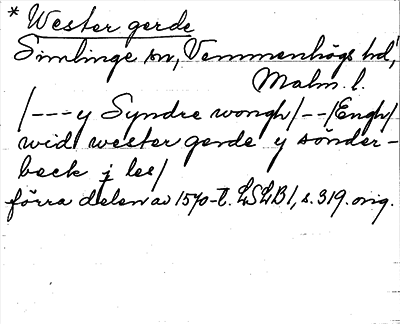 * Wester gerde
Simlinge sn, Vemmenhögs hd,
Malm. l.
/---y Syndre wongh/--/Engh/
wid wester gerde y sönder-
beck j les/
förra delen av 1570-t. LSLB1, s. 319. orig.